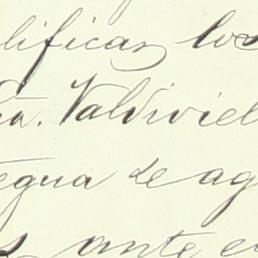 lificas los
ta. Valdiviel
egua de ag
s ante e